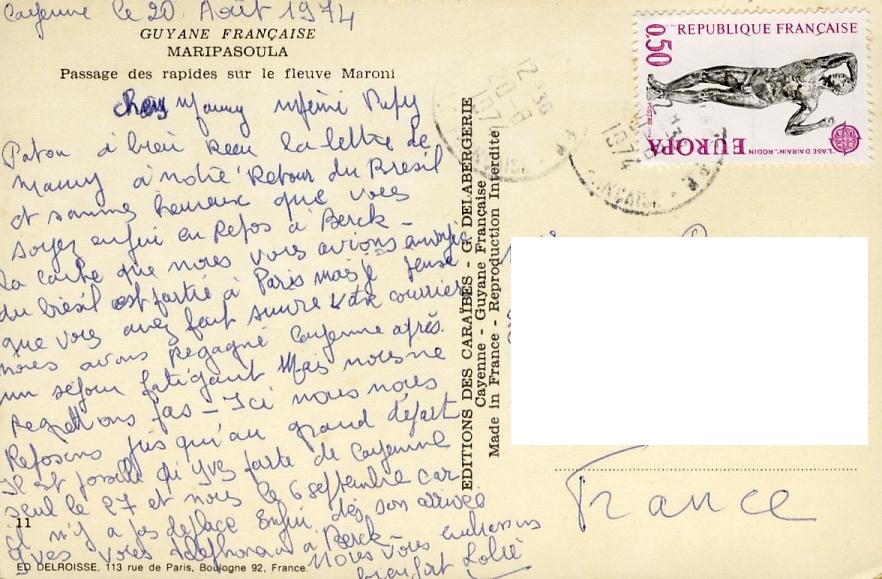 Cayenne le 20 Août 1974
GUYANE FRANÇAISE
MARIPASOULA
Passage des rapides sur le fleuve Maroni
chers Mamy Mémé Pepy
Patou a bien reçu la lettre de
Mamy à notre Retour du Bresil
et sommes heureux que vous
soyez enfin en Repos à Berck -
la carte que nous vous avions envoyée
du bresil est partie à Paris mais je pense
que vous avez fait suivre votre courrier
nous avons Regagné Cayenne après
un séjour fatigant Mais nous ne
Regrettons pas - Ici nous nous
Reposons jusqu'au grand départ
Il est possible qu'Yves parte de Cayenne
seul le 27 et nous le 6 septembre car
il n'y a pas de place Enfin dès son arrivée
Yves vous telephonera à Berck -
Nous vous embrassons
bien fort
11
ED DELROISSE, 113 rue de Paris, Boulogne 92, France.
EDITIONS DES CARAÏBES - G. DELABERGERIE
Cayenne - Guyane Française
Made in France - Reproduction Interdite
REPUBLIQUE FRANÇAISE
0,50
POSTES 1974
"L'AGE D'AIRAIN"_RODIN
EUROPA
12 H 30
20 - 8
1974
1974
France